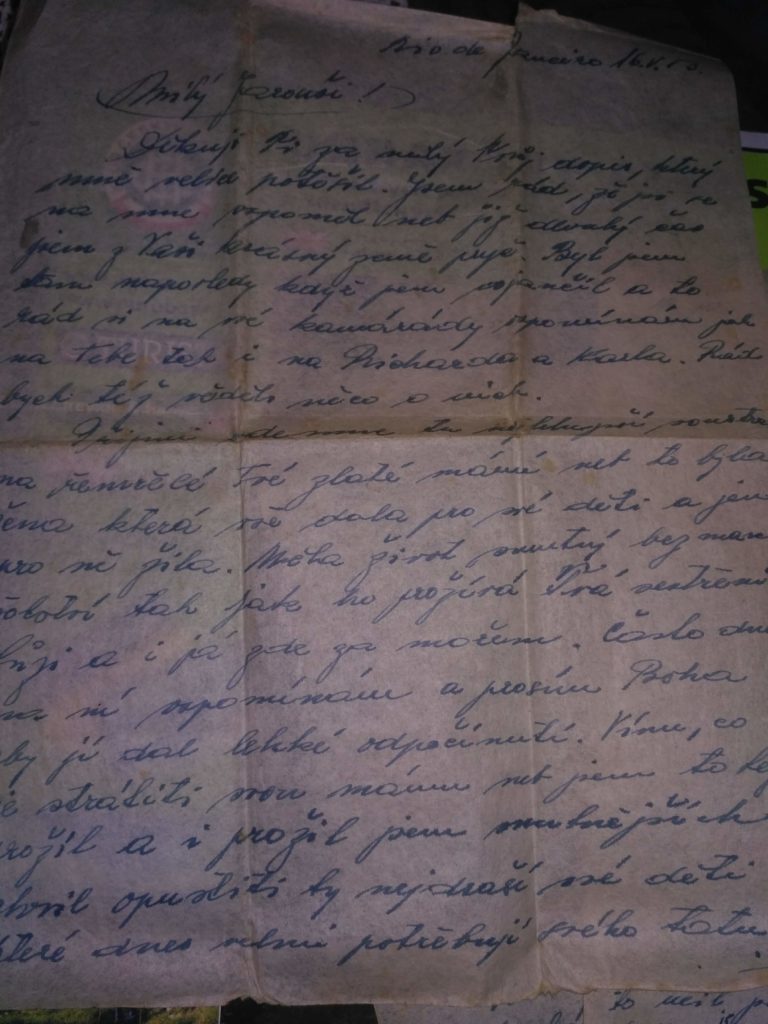 Rio de Janeiro 16.V.
Milý Jarouši!
Děkuji Ti za milý Tvůj dopis, který
mně velid potěšil. Jsem rád, že jsi se
na mne vzpoměl neb již dlouhý čas
jsem z Vaši krásný země pryč. Byl jsem
tam naposledy když jsem vojančil a to
rád si na své kamárády vzpomínám jak
na Tebe tak i na Richarda a Karla. Rád
bych též věděti něco o nich.
Přijmi ode mne tu
na zemřelé Tvé zlaté mámě neb to byla
žena která vše dala pro své děti a jen
pro ně žila. Měla život smutný bez man
želství tak jako ho prožívá Tvá
a i já zde za mořem. Často dnes
na ní vzpomínám a prosím Boha
aby jí dal lehké odpočinutí. Vím, co
je stratiti svou mámu neb jsem to
prožil a i prožil jsem smutnějších
chvil opustiti ty nejdražší své děti
které dnes velmi potřebují svého tátu.
to